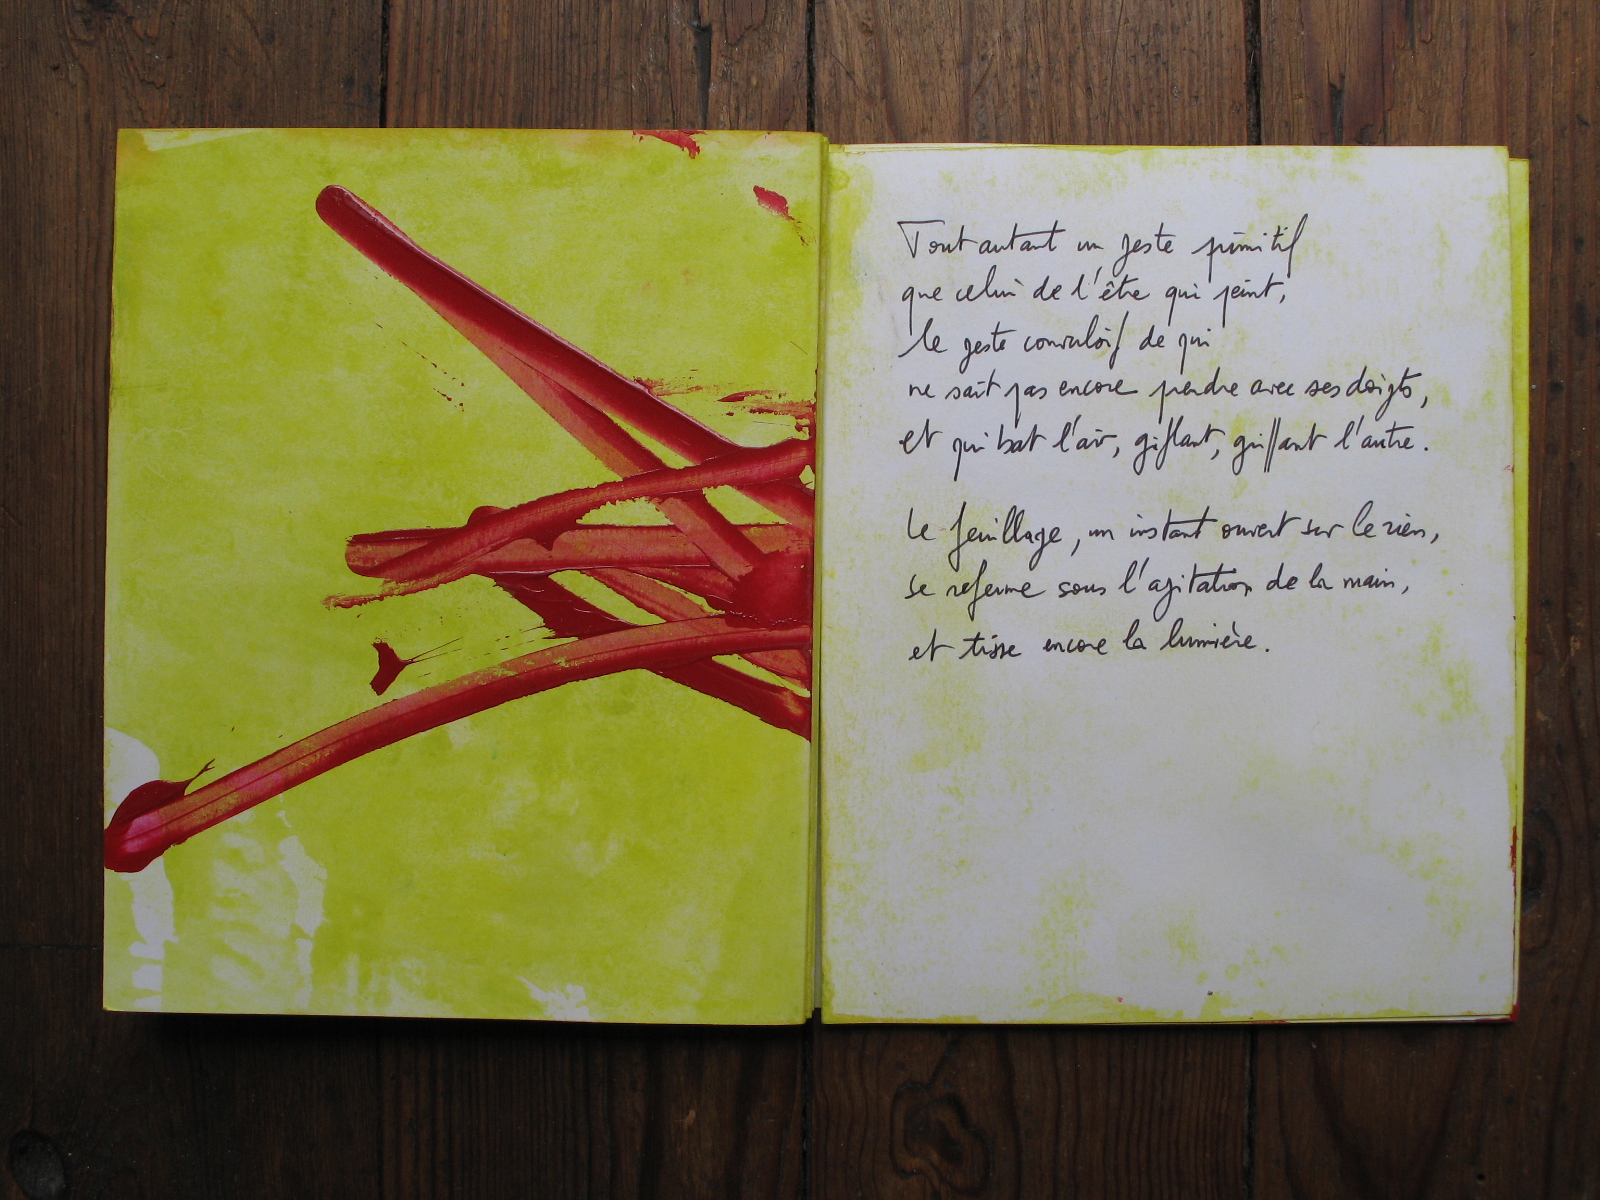 Tout autant un geste primitif
que celui de l'être qui peint,
le geste convulsif de qui
ne sait pas encore prendre avec ses doigts,
et qui bat l'air, giflant, griffant l'autre.
Le feuillage, un instant ouvert sur le rien,
se referme sous l'agitation de la main,
et tisse encore la lumière.